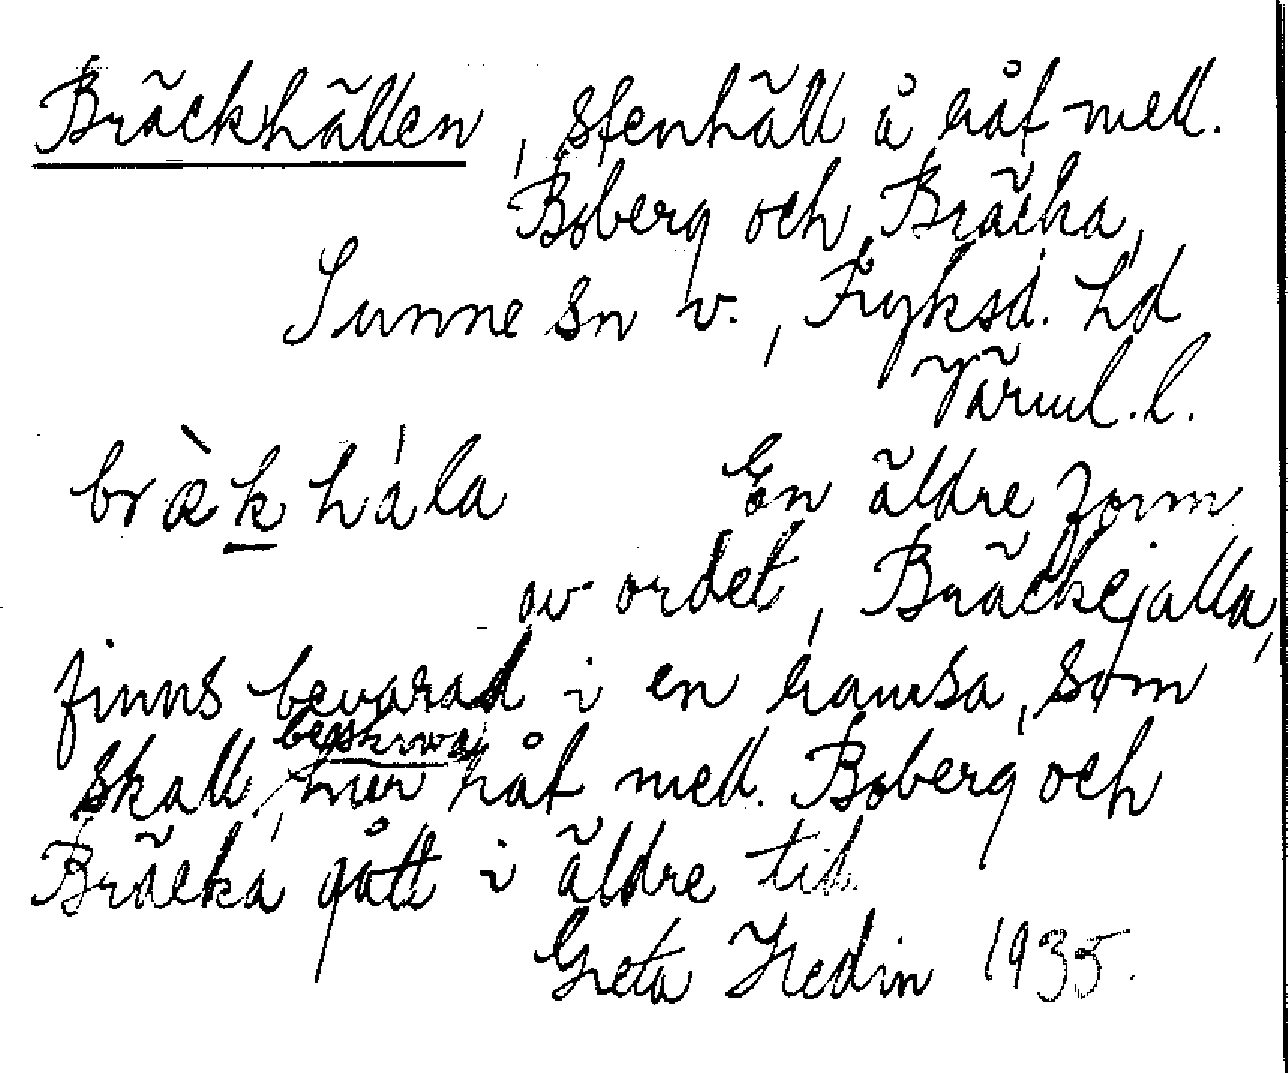 Bräckhällen, stenhäll å råf mell.
Boberg och Bräcka,
Sunne sn v., Fryksd. hd
Värml. l.
bràk hála En äldre form
av ordet, Bräckejalla,
finns bevarad i en ramsa, som
skall beskriva hur råf mell. Boberg och
Bräcka gått i äldre tid.
Greta Hedin 1935.